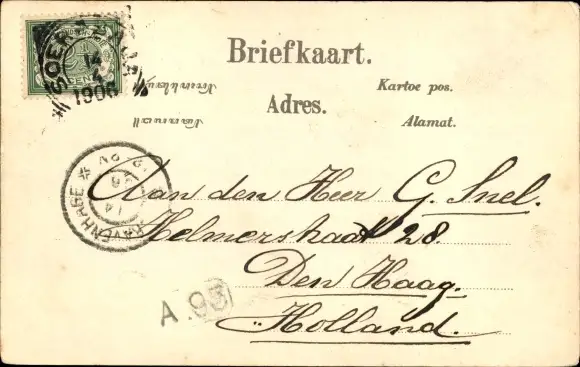 SOERABAJA
14
1906
CENT
Briefkaart.
Kartoe pos.
Adres.
Alamat.
'S GRAVENHAGE
14
Aan den Heer G. Snel.
Helmerstraat 28.
Den Haag.
Holland.
A.93